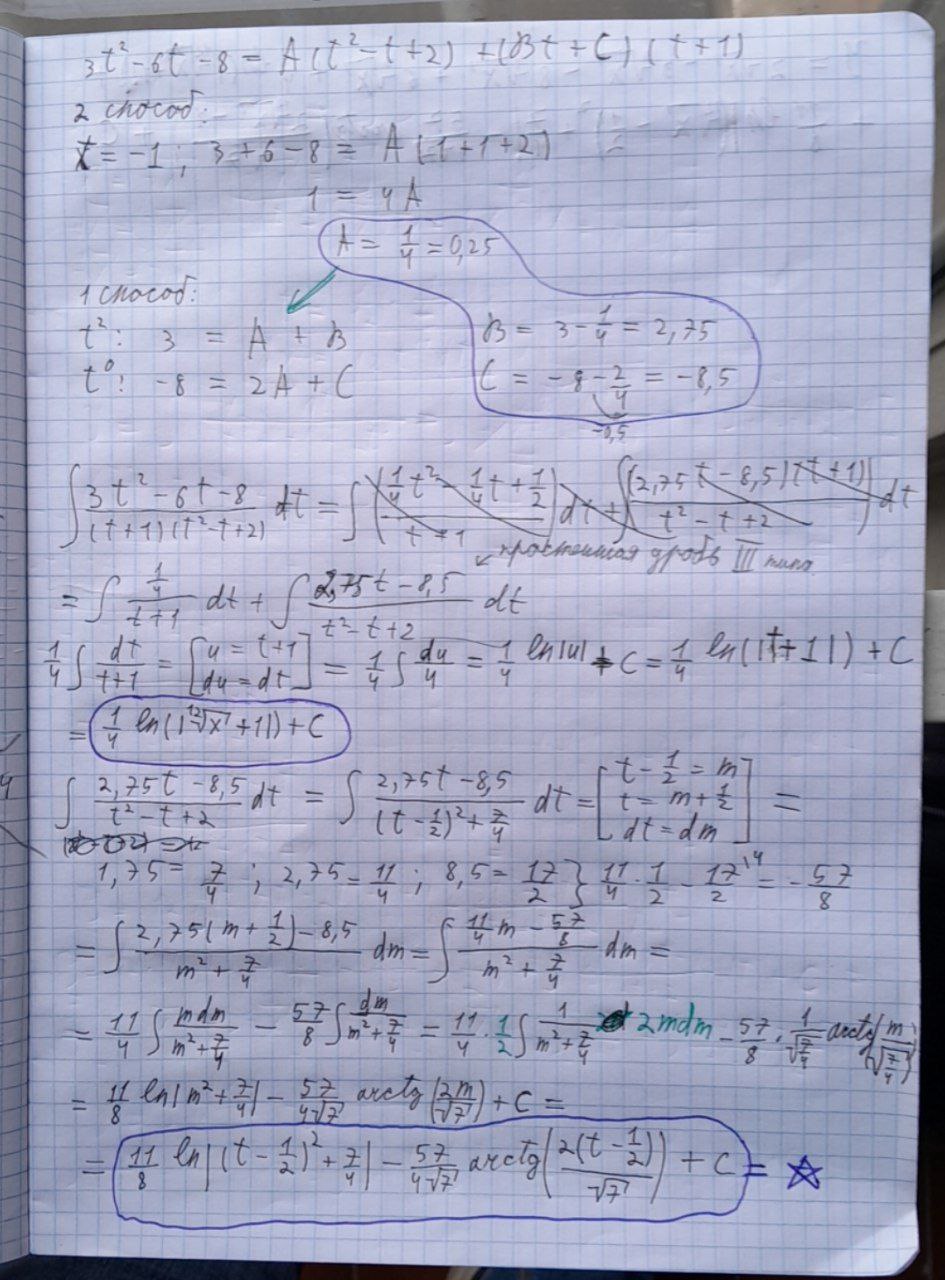 3t² - 6t - 8 = A(t² - t + 2) + (Bt + C)(t + 1)
2 способ:
t = -1 ; 3 + 6 - 8 = A(1 + 1 + 2)
1 = 4A
A = 1/4 = 0,25
1 способ:
t²: 3 = A + B
B = 3 - 1/4 = 2,75
t⁰: -8 = 2A + C
C = -8 - 2/4 = -8,5
-0,5
∫ (3t² - 6t - 8)/((t+1)(t² - t + 2)) dt = ∫ ((1/4 t² - 1/4 t + 1/2)/(t+1)) dt + ∫ ((2,75t - 8,5)(t+1))/(t² - t + 2) dt
простейшая дробь III типа
= ∫ (1/4)/(t+1) dt + ∫ (2,75t - 8,5)/(t² - t + 2) dt
1/4 ∫ dt/(t+1) = [u = t+1 du = dt] = 1/4 ∫ du/u = 1/4 ln|u| + C = 1/4 ln(|t+1|) + C
= 1/4 ln(|¹²√x + 1|) + C
∫ (2,75t - 8,5)/(t² - t + 2) dt = ∫ (2,75t - 8,5)/((t - 1/2)² + 7/4) dt = [t - 1/2 = m t = m + 1/2 dt = dm] =
1,75 = 7/4 ; 2,75 = 11/4 ; 8,5 = 17/2 } 11/4 · 1/2 - 17/2 \4 = - 57/8
= ∫ (2,75(m + 1/2) - 8,5)/(m² + 7/4) dm = ∫ (11/4 m - 57/8)/(m² + 7/4) dm =
= 11/4 ∫ mdm/(m² + 7/4) - 57/8 ∫ dm/(m² + 7/4) = 11/4 · 1/2 ∫ 1/(m² + 7/4) 2mdm - 57/8 · 1/√(7/4) arctg(m/√(7/4))
= 11/8 ln|m² + 7/4| - 57/(4√7) arctg(2m/√7) + C =
= 11/8 ln|(t - 1/2)² + 7/4| - 57/(4√7) arctg(2(t - 1/2)/√7) + C = ☆